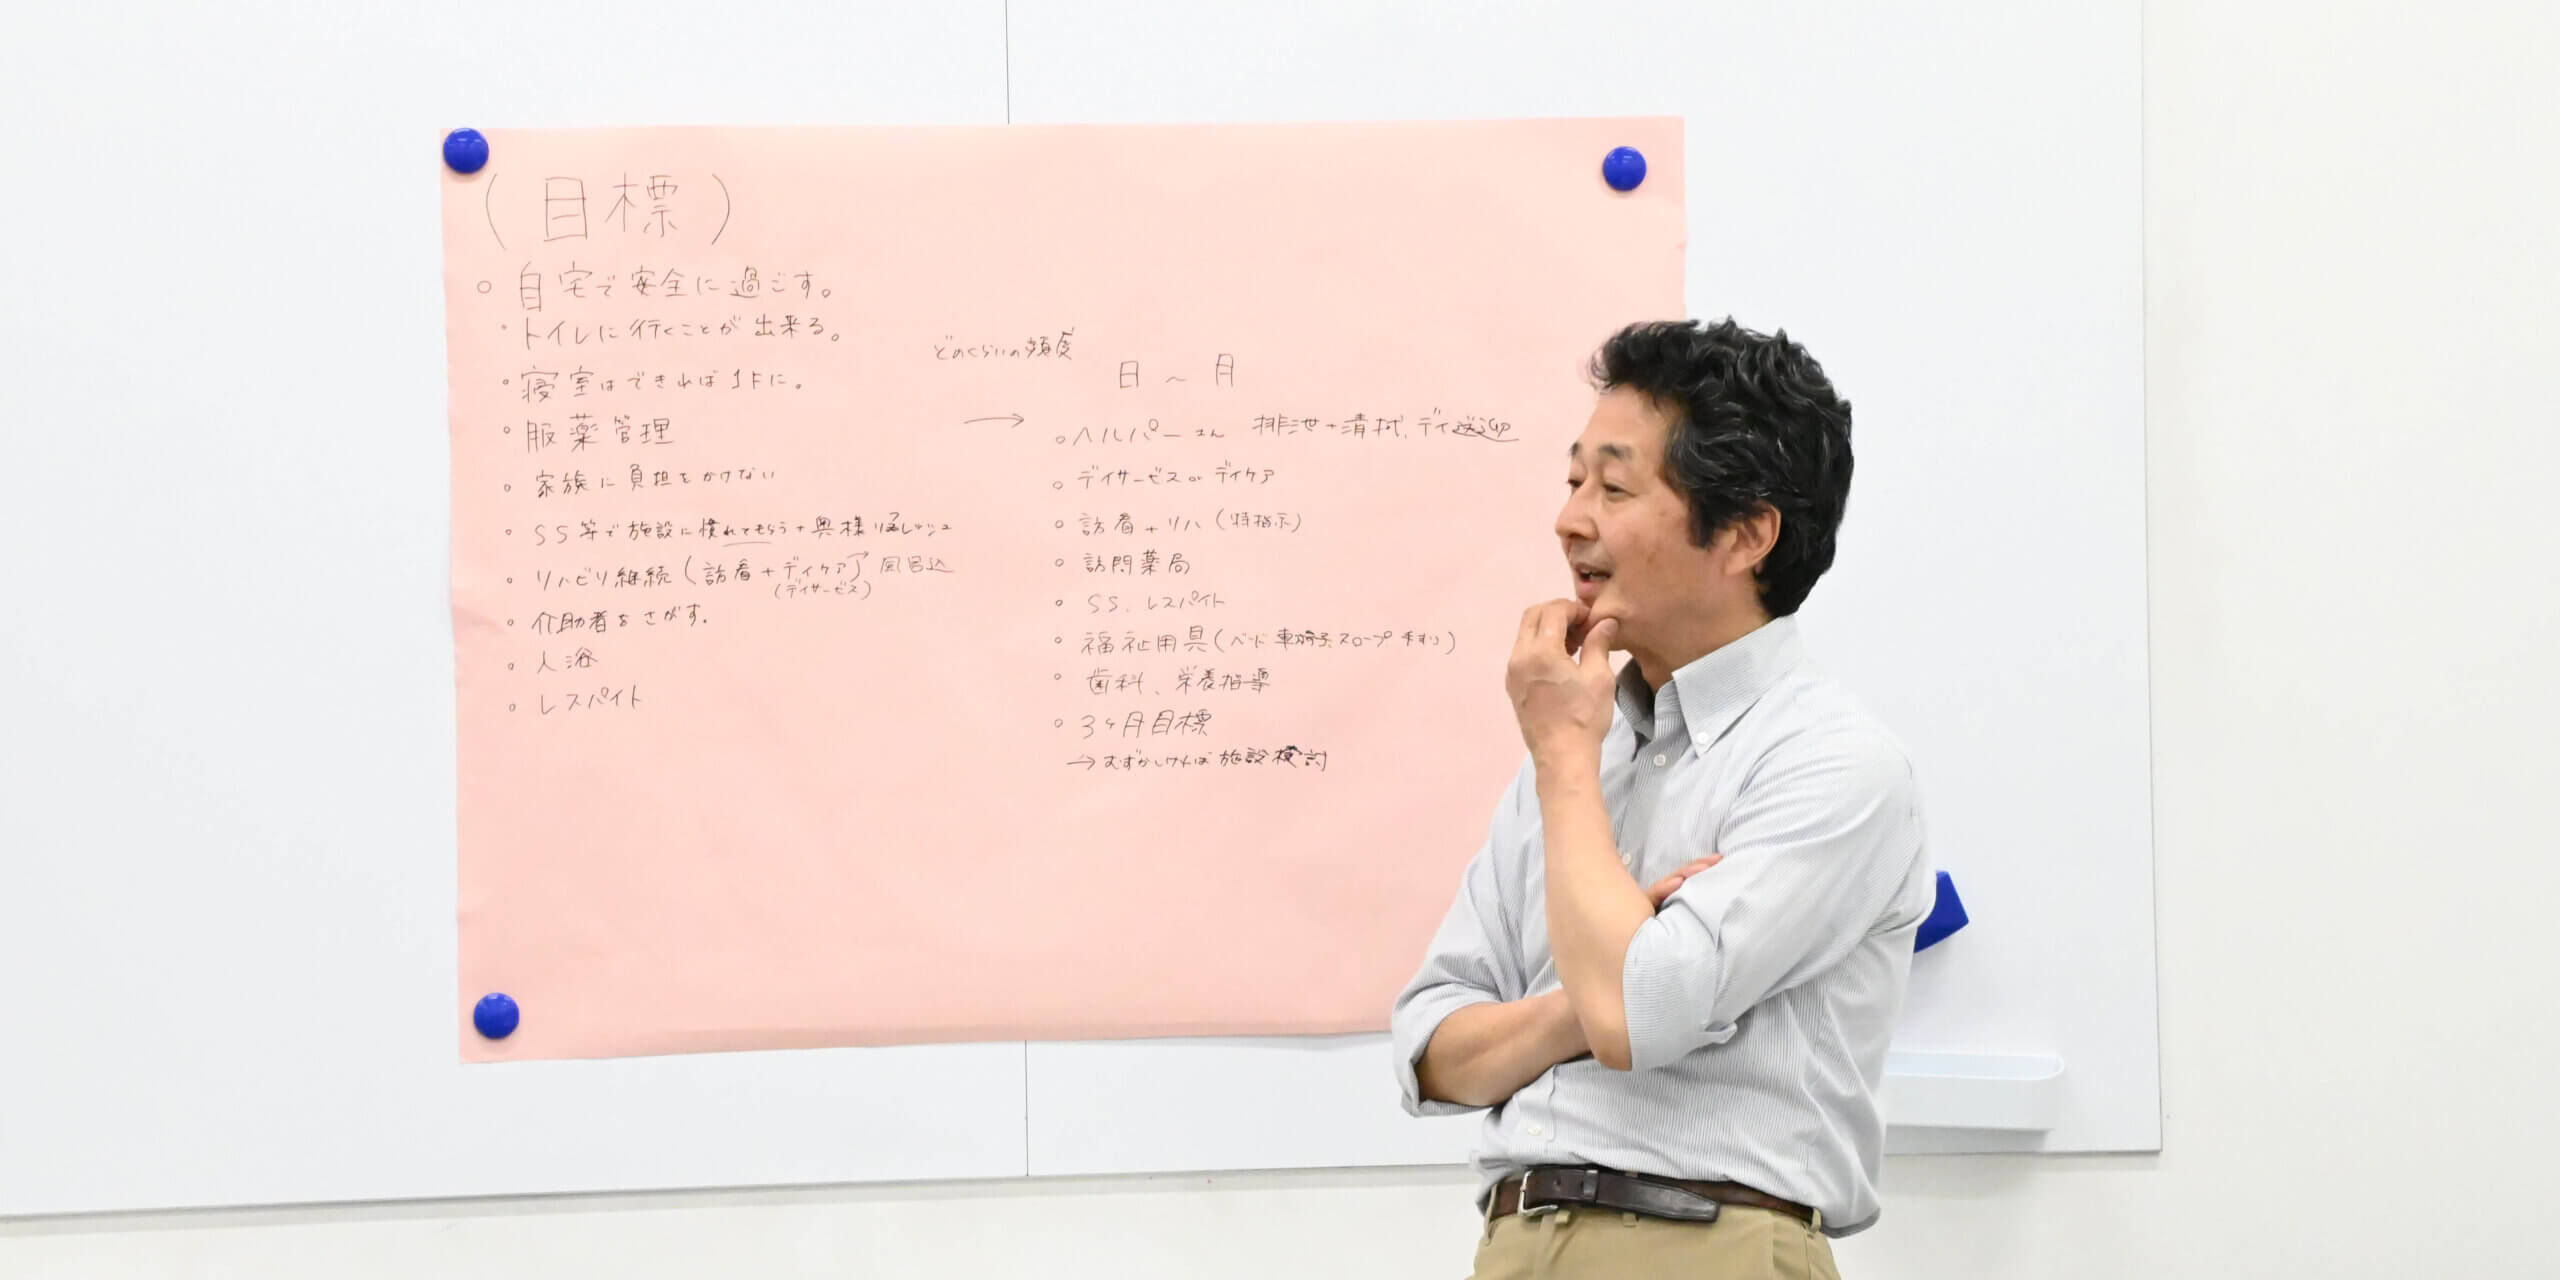 (目標)
○ 自宅で安全に過ごす。
・トイレに行くことが出来る。
・寝室はできれば1Fに。
・服薬管理
・家族に負担をかけない
・SS等で施設に慣れてもらう+奥様リフレッシュ
・リハビリ継続(訪看+デイケア)→風呂込
(デイサービス)
・介助者をさがす。
・入浴
・レスパイト
どのくらいの頻度
日〜月
→
○ヘルパーさん 排泄+清拭、デイ送迎
○デイサービスorデイケア
○訪看+リハ(特指示)
○訪問薬局
○SS、レスパイト
○福祉用具(ベード 車椅子 スロープ 手すり)
○歯科、栄養指導
○3ヶ月目標
→むずかしければ施設検討